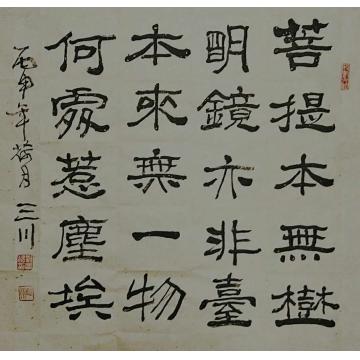 菩提本無樹
明鏡亦非臺
本來無一物
何處惹塵埃
丙申年荷月 三川